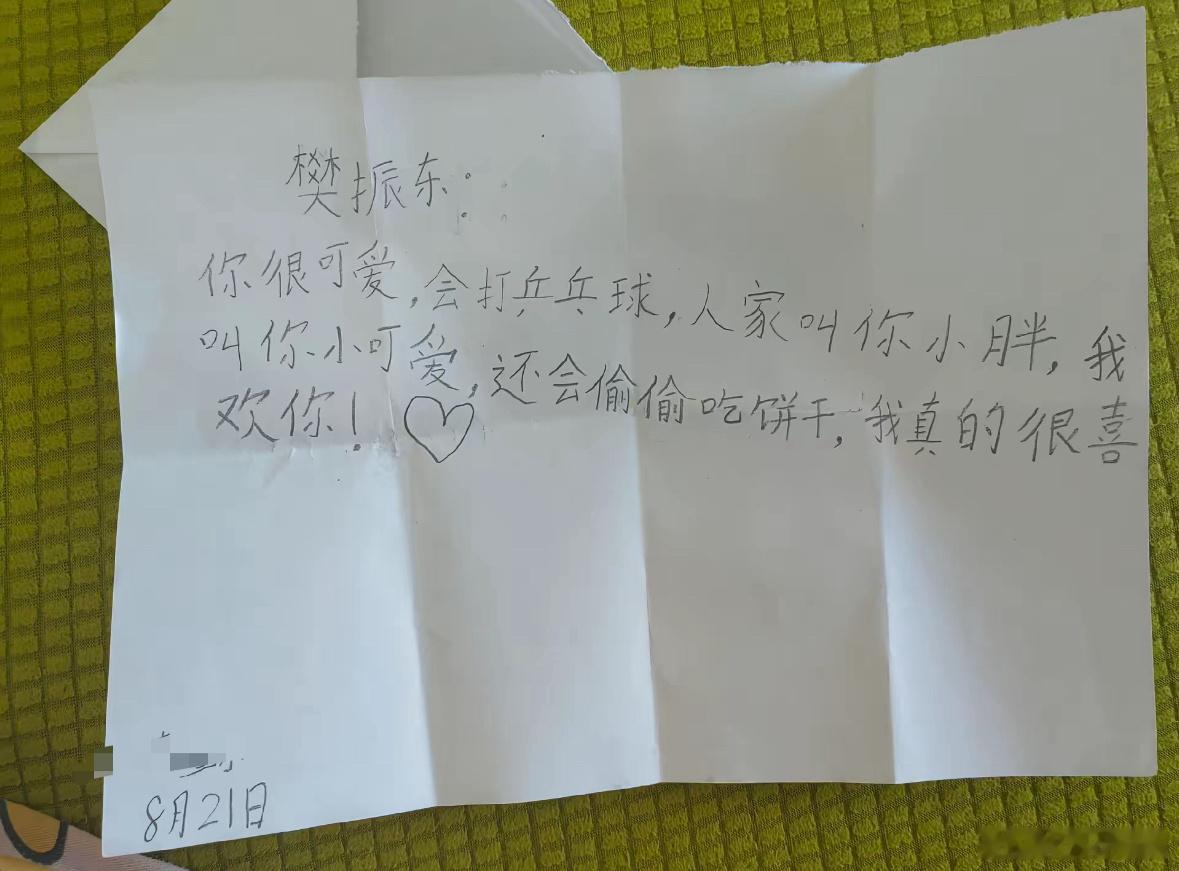 樊振东：
你很可爱，会打乒乓球，人家叫你小胖，我
叫你小可爱，还会偷偷吃饼干，我真的很喜
欢你！♡
8月21日